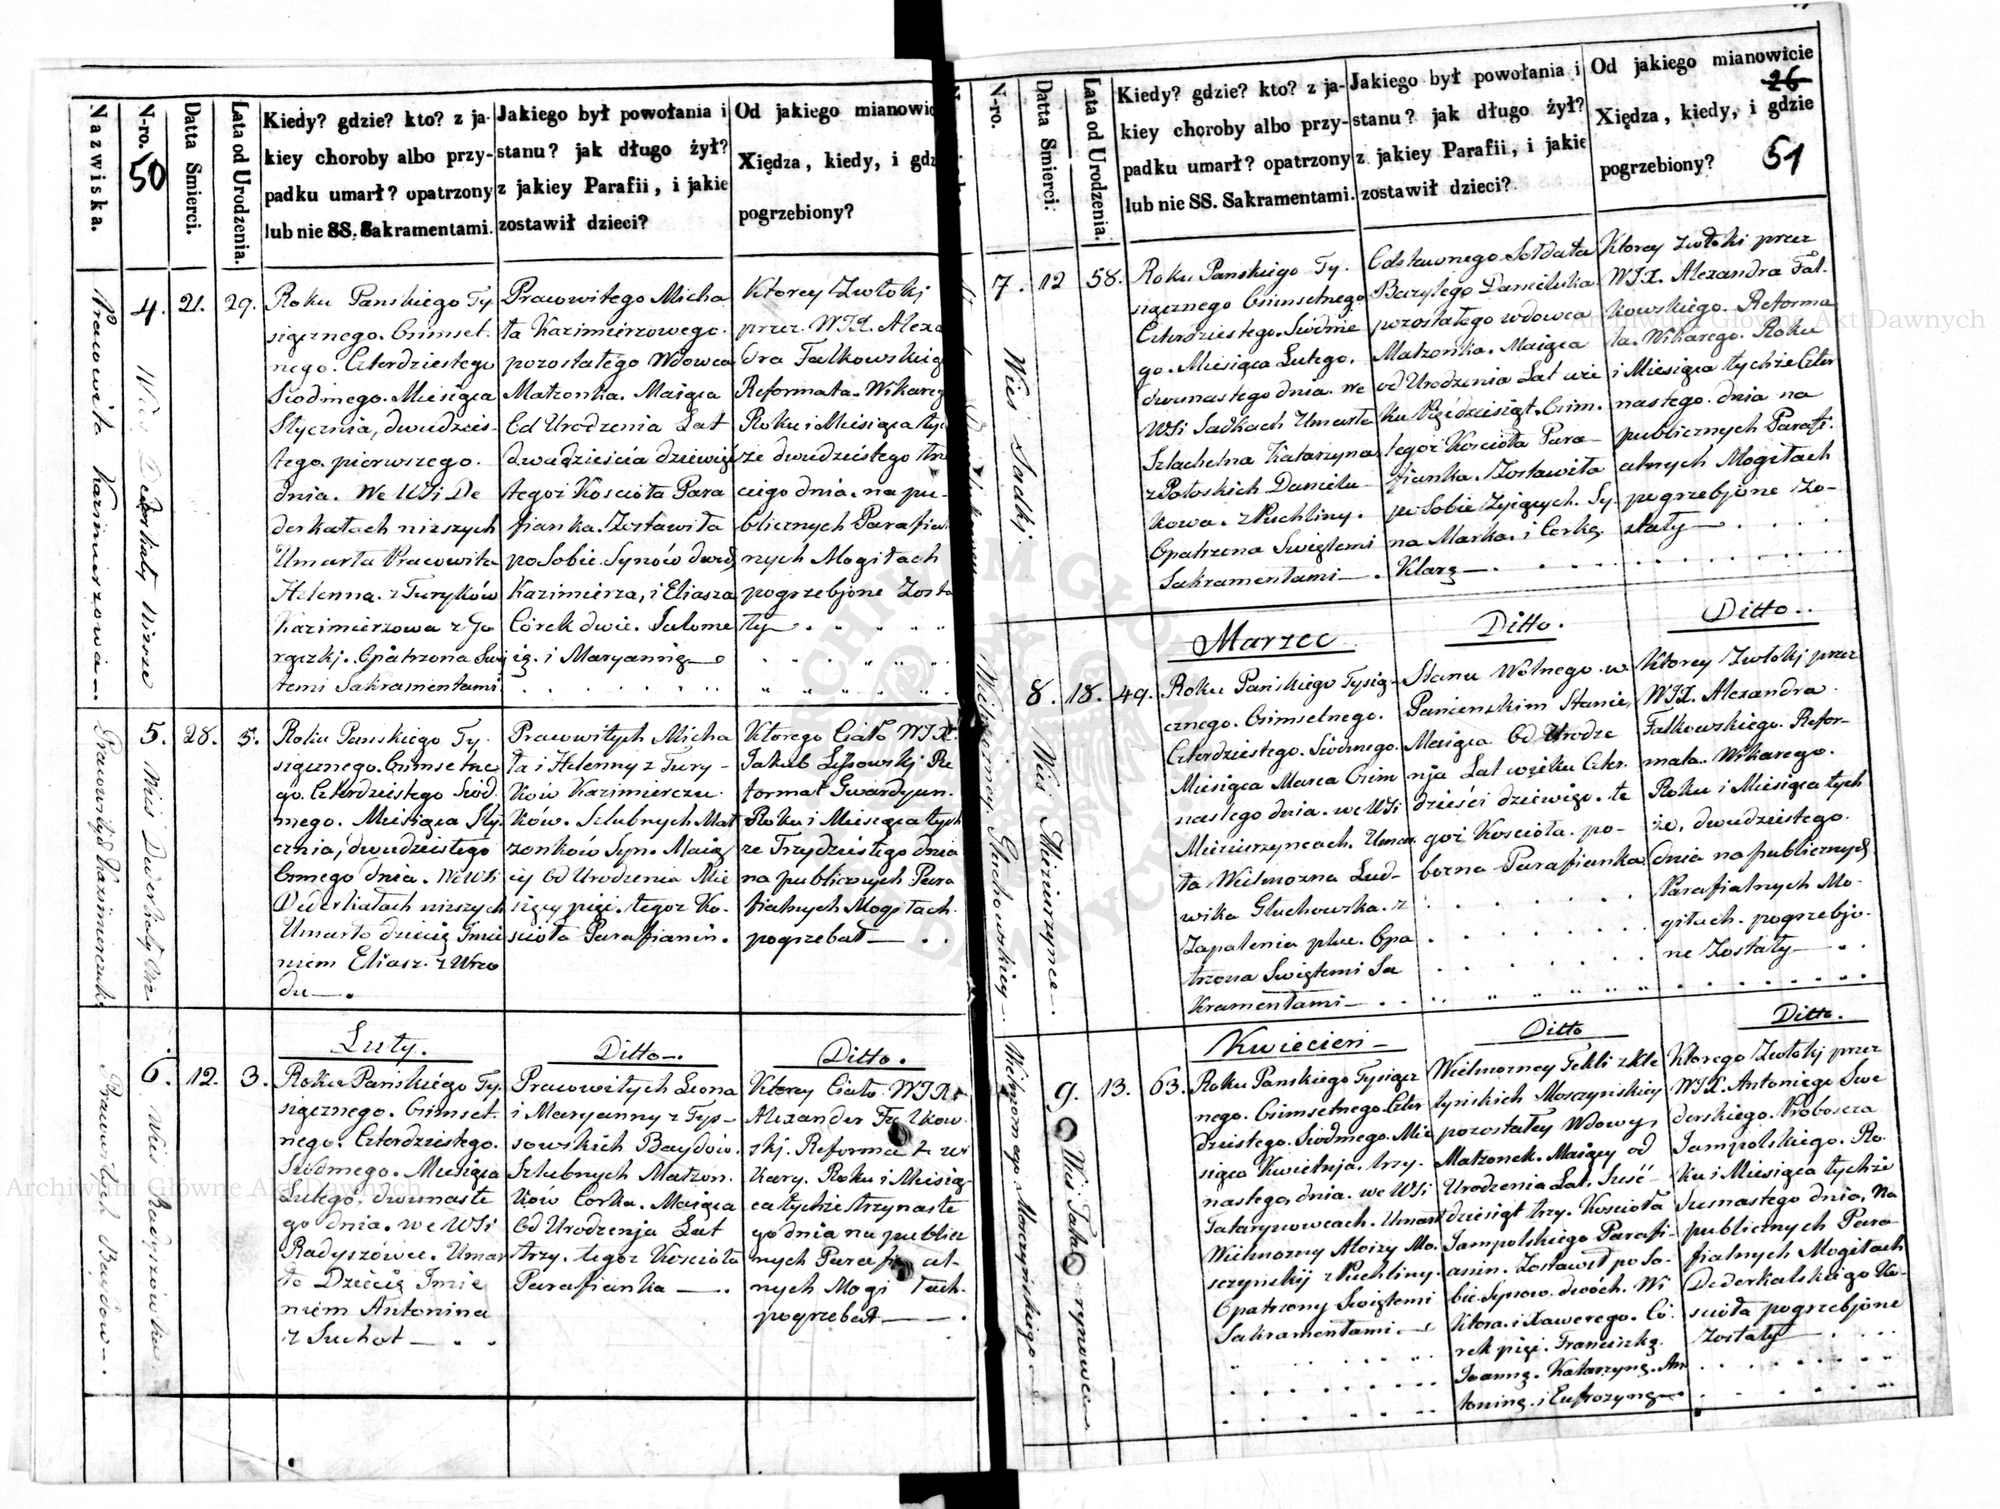 Nazwiska.
N-ro.
50
Datta Smierci.
Lata od Urodzenia.
Kiedy? gdzie? kto? z ja-
kiey choroby albo przy-
padku umarł? opatrzony
lub nie SS. Sakramentami.
Jakiego był powołania i
stanu? jak długo żył?
z jakiey Parafii, i jakie
zostawił dzieci?
Od jakiego mianowic
Xiędza, kiedy, i gdz
pogrzebiony?
Pracowita Kazimierzowa
4.
Wieś Dederkały Niższe
21.
29.
Roku Panskiego Ty
siącznego. Ósmset.
nego. Czterdziestego
Siodmego. Miesiąca
Stycznia, dwudzies-
tego pierwszego.
dnia. We Wsi De
derkałach niższych
Umarła Pracowita
Helenna z Turyków
Kazimierzowa z Go
rączkj. Opatrzona Świę
temi Sakramentami
Pracowitego Micha
ła Kazimierzowego.
pozostałego Wdowca
Małzonka. Maiąca
Od Urodzenia Lat
dwadzieścia dziewięć
tegoż Kościoła Para
fianka. Zostawiła
po Sobie Synów dwóch
Kazimierza, i Eliasza
Córek dwie. Salome
ią. i Maryannę
Ktorey Zwłokj
przez WJX. Alexa
dra Falkowskieg
Reformata. Wikareg
Roku i Miesiąca tyc
że dwudziestego trze
ciego dnia. na pu-
blicznych Parafial
nych Mogiłach
pogrzebjone Zosta
ły
Pracowitych Kazimierczuków
5.
Wieś Dederkały Niż
28.
5.
Roku Panskiego Ty.
siącznego. Ósmsetne
go. Czterdziestego Siód.
mego. Miesiąca Sty
cznia, dwudziestego
Osmego dnia. We Wsi
Dederkałach niższych
Umarło dziecię Imie
niem Eliasz. z Wrzo
du
Pracowitych Micha
ła i Helenny z Tury-
ków Kazimierczu.
ków. Szlubnych Mał
zonków Syn. Maią
cy Od Urodzenia Mie
sięcy pięć. tegoz Ko.
scioła Parafianin.
Ktorego Ciało WJX.
Jakub Lissowskj Re
format Gwardyan.
Roku i Miesiąca tych
że Trzydziestego dnia
na publicznych Para
fialnych Mogiłach.
pogrzebał
Pracowitych Baydów
6.
Wieś Radyszówka
12.
3.
Luty.
Roku Pańskiégo Ty.
siącznego. Ósmset.
nego. Czterdziestego.
Siódmego. Miesiąca
Lutego, dwunaste
go dnia. we Wsi
Radyszówce. Umar
ło Dziecię Imie
niem Antonina
z Suchot
Ditto.
Pracowitych Leona
i Maryanny z Tys-
sowskich Baydów.
Szlubnych Małzon.
ków Corka. Maiąca
Od Urodzenja Lat
trzy. tegoż Kościoła
Parafianka
Ditto.
Ktorey Ciało WJX.
Alexander Falkow.
skj. Reformat Wi
kary. Roku i Miesią
ca tychże trzynaste
go dnia na publicz
nych Parafial-
nych Mogiłach.
pogrzebał
N-ro.
Datta Smierci.
Lata od Urodzenia.
Kiedy? gdzie? kto? z ja-
kiey choroby albo przy-
padku umarł? opatrzony
lub nie SS. Sakramentami.
Jakiego był powołania i
stanu? jak długo żył?
z jakiey Parafii, i jakie
zostawił dzieci?
Od jakiego mianowicie
26
Xiędza, kiedy, i gdzie
51
pogrzebiony?
7.
Wies Sadkj
12
58.
Roku Panskiego Ty.
siącznego Ósmsetnego
Czterdziestego. Siódme
go. Miesiąca Lutego.
dwunastego dnia. we
Wsi Sadkach Umarła
Szlachetna Katarzyna
z Potoskich Danielu-
kowa. z Puchliny.
Opatrzona Swiętemi
Sakramentami
Odstawnego Sołdata
Bazylego Danieluka
pozostałego wdowca
Małzonka. Maiąca
od Urodzenia Lat wie
ku Pięćdziesiąt. Osm.
tegoż Kościoła Para-
fianka. Zostawiła
po Sobie Żyiących. Sy-
na Marka. i Corkę.
Klarę
Ktorey Zwłoki przez
WJX. Alexandra Fal.
kowskiego. Reforma
ta. Wikarego. Roku
i Miesiąca tychże Czter
nastego. dnia na
publicznych Parafi.
alnych Mogiłach
pogrzebjone Zo-
stały
Wielmożney Głuchowskiey
8.
Wieś Mizierzynce
18.
49.
Marzec
Roku Pańskiego Tysią-
cznego. Ósmsetnego.
Czterdziestego. Siódmego.
Miesiąca Marca Ósm
nastego dnia. we Wsi
Mizierzyncach. Umar
ła Wielmożna Lud-
wika Głuchowska. z
Zapalenia płuc. Opa
trzona Swiętemi Sa
kramentami
Ditto.
Stanu Wolnego. w.
Panienskim Stanie,
Maiąca Od Urodze
nja Lat wieku Czter.
dzieści dziewięć. te
goż Kościoła. po-
borna Parafianka
Ditto.
Ktorey Zwłokj przez
WJX. Alexandra.
Falkowskiego. Refor-
mata. Wikarego.
Roku i Miesiąca tych
że, dwudziestego.
dnia na publicznych
Parafialnych Mo-
giłach. pogrzebjo-
ne Zostały
Wielmożnego Moczyńskiego
9.
Wieś Tatarynowce
13.
63.
Kwiecień
Roku Panskiego Tysiącz
nego. Ósmsetnego Czter
dziestego. Siódmego. Mie
siąca Kwietnja. trzy.
nastego, dnia. we Wsi
Tatarynowcach. Umarł
Wielmożny Aloizy Mo.
szczynskij z Puchliny.
Opatrzony Swiętemi
Sakramentami
Ditto
Wielmożney Tekli z Kle
tyńskich Moszczynskiey
pozostałey Wdowy,
Małzonek. Maiący od
Urodzenia Lat. Sześć-
dziesiąt trzy. Kościoła
Jampolskiego Parafi-
anin. Zostawił po So-
bie. Synów. dwóch. Wi
ktora. i Xawerego. Có
rek pięć. Franciszkę.
Joannę. Katarzynę. An
toninę. i Eufrozynę
Ditto.
Ktorego Zwłokj przez
WJX. Antoniego Swi
derskiego. Proboscza
Jampolskiego. Ro.
ku i Miesiąca tychże
Szesnastego dnia, na
publicznych Para-
fialnych Mogiłach
Dederkalskiégo Ko-
scioła pogrzebjone
Zostały
Archiwum Główne Akt Dawnych
Archiwum Główne Akt Dawnych